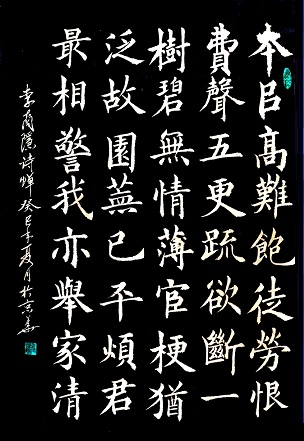 本㠯高難飽徒勞恨
費聲五更疏欲斷一
樹碧無情薄宦梗猶
泛故園蕪已平煩君
最相警我亦舉家清
李商隱詩蟬癸巳年夏月於京華